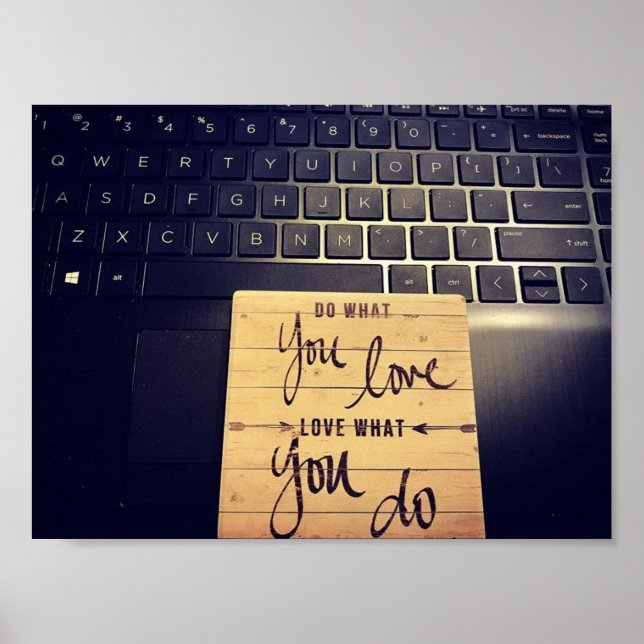 prt sc delete home
! 1 @ 2 # 3 $ 4 % 5 ^ 6 & 7 * 8 ( 9 ) 0 _ - + = ← backspace num lock
Q W E R T Y U I O P { [ } ] | \ 7
A S D F G H J K L : ; " ' ← enter
Z X C V B N M < , > . ? / pause ↑ shift
alt alt ctrl < >
DO WHAT
You love
LOVE WHAT
You do